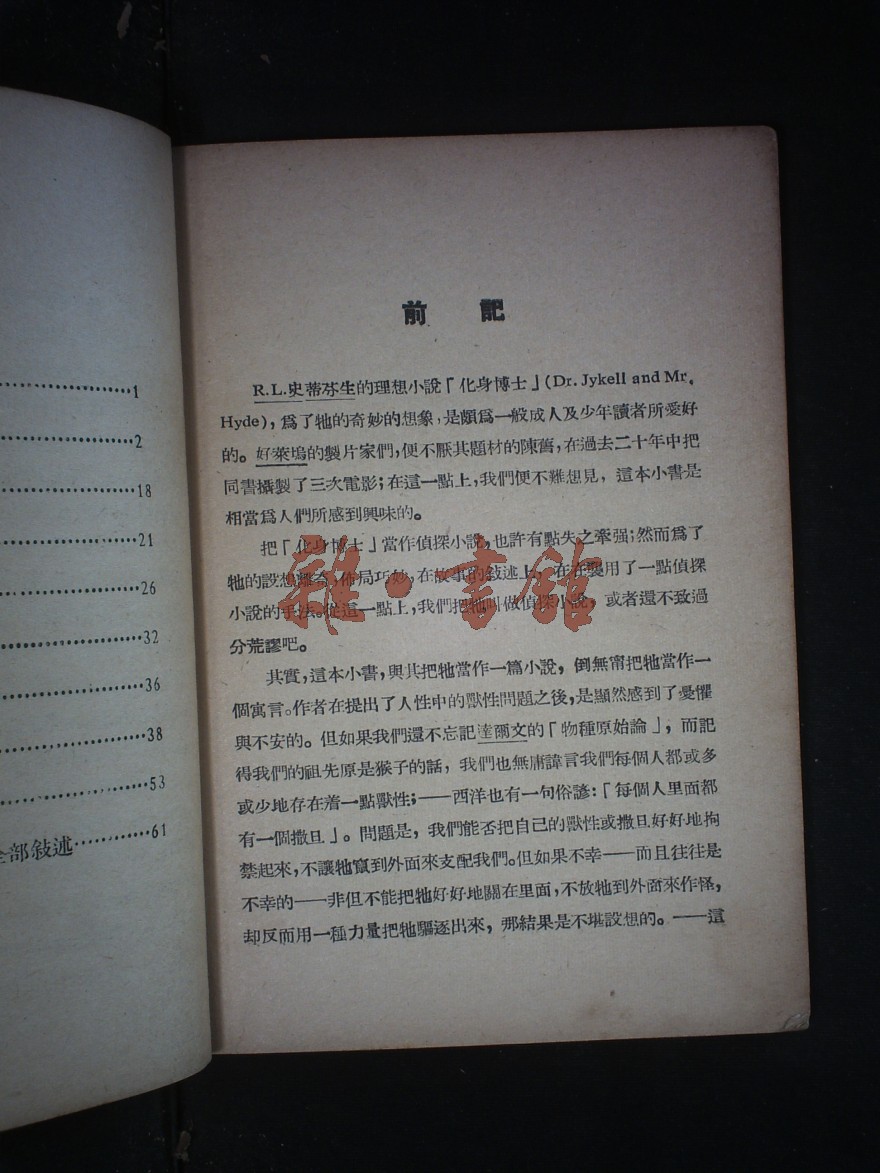 1
2
18
21
26
32
36
38
53
全部敍述 61
前 記
R.L.史蒂芬生的理想小說「化身博士」(Dr. Jykell and Mr.
Hyde)，爲了牠的奇妙的想象，是頗爲一般成人及少年讀者所愛好
的。好萊塢的製片家們，便不厭其題材的陳舊，在過去二十年中把
同書攝製了三次電影；在這一點上，我們便不難想見，這本小書是
相當爲人們所感到興味的。
把「化身博士」當作偵探小說，也許有點失之牽强；然而爲了
牠的設想離奇，佈局巧妙，在故事的敍述上，在在襲用了一點偵探
小說的手法。從這一點上，我們把牠叫做偵探小說，或者還不致過
分荒謬吧。
其實，這本小書，與其把牠當作一篇小說，倒無甯把牠當作一
個寓言。作者在提出了人性中的獸性問題之後，是顯然感到了憂懼
與不安的。但如果我們還不忘記達爾文的「物種原始論」，而記
得我們的祖先原是猴子的話，我們也無庸諱言我們每個人都或多
或少地存在着一點獸性；——西洋也有一句俗諺：「每個人里面都
有一個撒旦」。問題是，我們能否把自己的獸性或撒旦好好地拘
禁起來，不讓牠竄到外面來支配我們。但如果不幸——而且往往是
不幸的——非但不能把牠好好地關在里面，不放牠到外面來作怪，
却反而用一種力量把牠驅逐出來，那結果是不堪設想的。——這
雜·書館